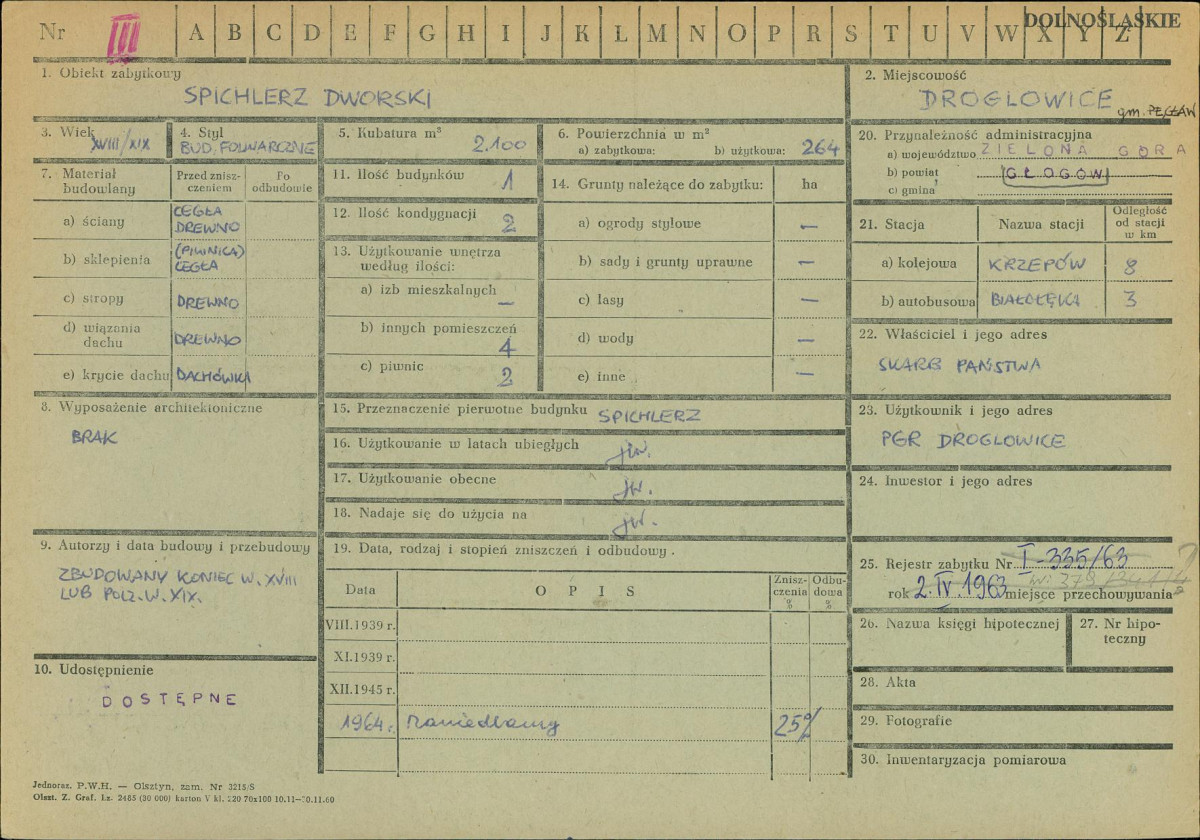 Nr III A B C D E F G H I J K L M N O P R S T U V W X Y Z
DOLNOŚLĄSKIE
1. Obiekt zabytkowy
SPICHLERZ DWORSKI
2. Miejscowość
DROGLOWICE gm. PĘCŁAW
3. Wiek
XVIII/XIX
4. Styl
BUD. FOLWARCZNE
5. Kubatura m³
2.100
6. Powierzchnia w m²
a) zabytkowa: b) użytkowa: 264
7. Materiał budowlany
Przed zniszczeniem
Po odbudowie
a) ściany CEGŁA DREWNO
b) sklepienia (PIWNICA) CEGŁA
c) stropy DREWNO
d) wiązania dachu DREWNO
e) krycie dachu DACHÓWKA
8. Wyposażenie architektoniczne
BRAK
9. Autorzy i data budowy i przebudowy
ZBUDOWANY KONIEC W. XVIII
LUB POŁ. W. XIX.
10. Udostępnienie
DOSTĘPNE
11. Ilość budynków 1
12. Ilość kondygnacji 2
13. Użytkowanie wnętrza
według ilości:
a) izb mieszkalnych —
b) innych pomieszczeń 4
c) piwnic 2
14. Grunty należące do zabytku: ha
a) ogrody stylowe —
b) sady i grunty uprawne —
c) lasy —
d) wody —
e) inne —
15. Przeznaczenie pierwotne budynku SPICHLERZ
16. Użytkowanie w latach ubiegłych jw.
17. Użytkowanie obecne jw.
18. Nadaje się do użycia na jw.
19. Data, rodzaj i stopień zniszczeń i odbudowy.
Data OPIS Zniszczenia % Odbudowa %
VIII.1939 r.
XI.1939 r.
XII.1945 r.
1964 r. 25%
20. Przynależność administracyjna
a) województwo ZIELONA GÓRA
b) powiat GŁOGÓW
c) gmina
21. Stacja Nazwa stacji Odległość od stacji w km
a) kolejowa KRZEPÓW 8
b) autobusowa BIAŁOŁĘKA 3
22. Właściciel i jego adres
SKARB PAŃSTWA
23. Użytkownik i jego adres
PGR DROGLOWICE
24. Inwestor i jego adres
25. Rejestr zabytku Nr I-335/63
rok 2.IV.1963 miejsce przechowywania
26. Nazwa księgi hipotecznej
27. Nr hipoteczny
28. Akta
29. Fotografie
30. Inwentaryzacja pomiarowa
Jednoraz. P.W.H. — Olsztyn, zam. Nr 3215/S